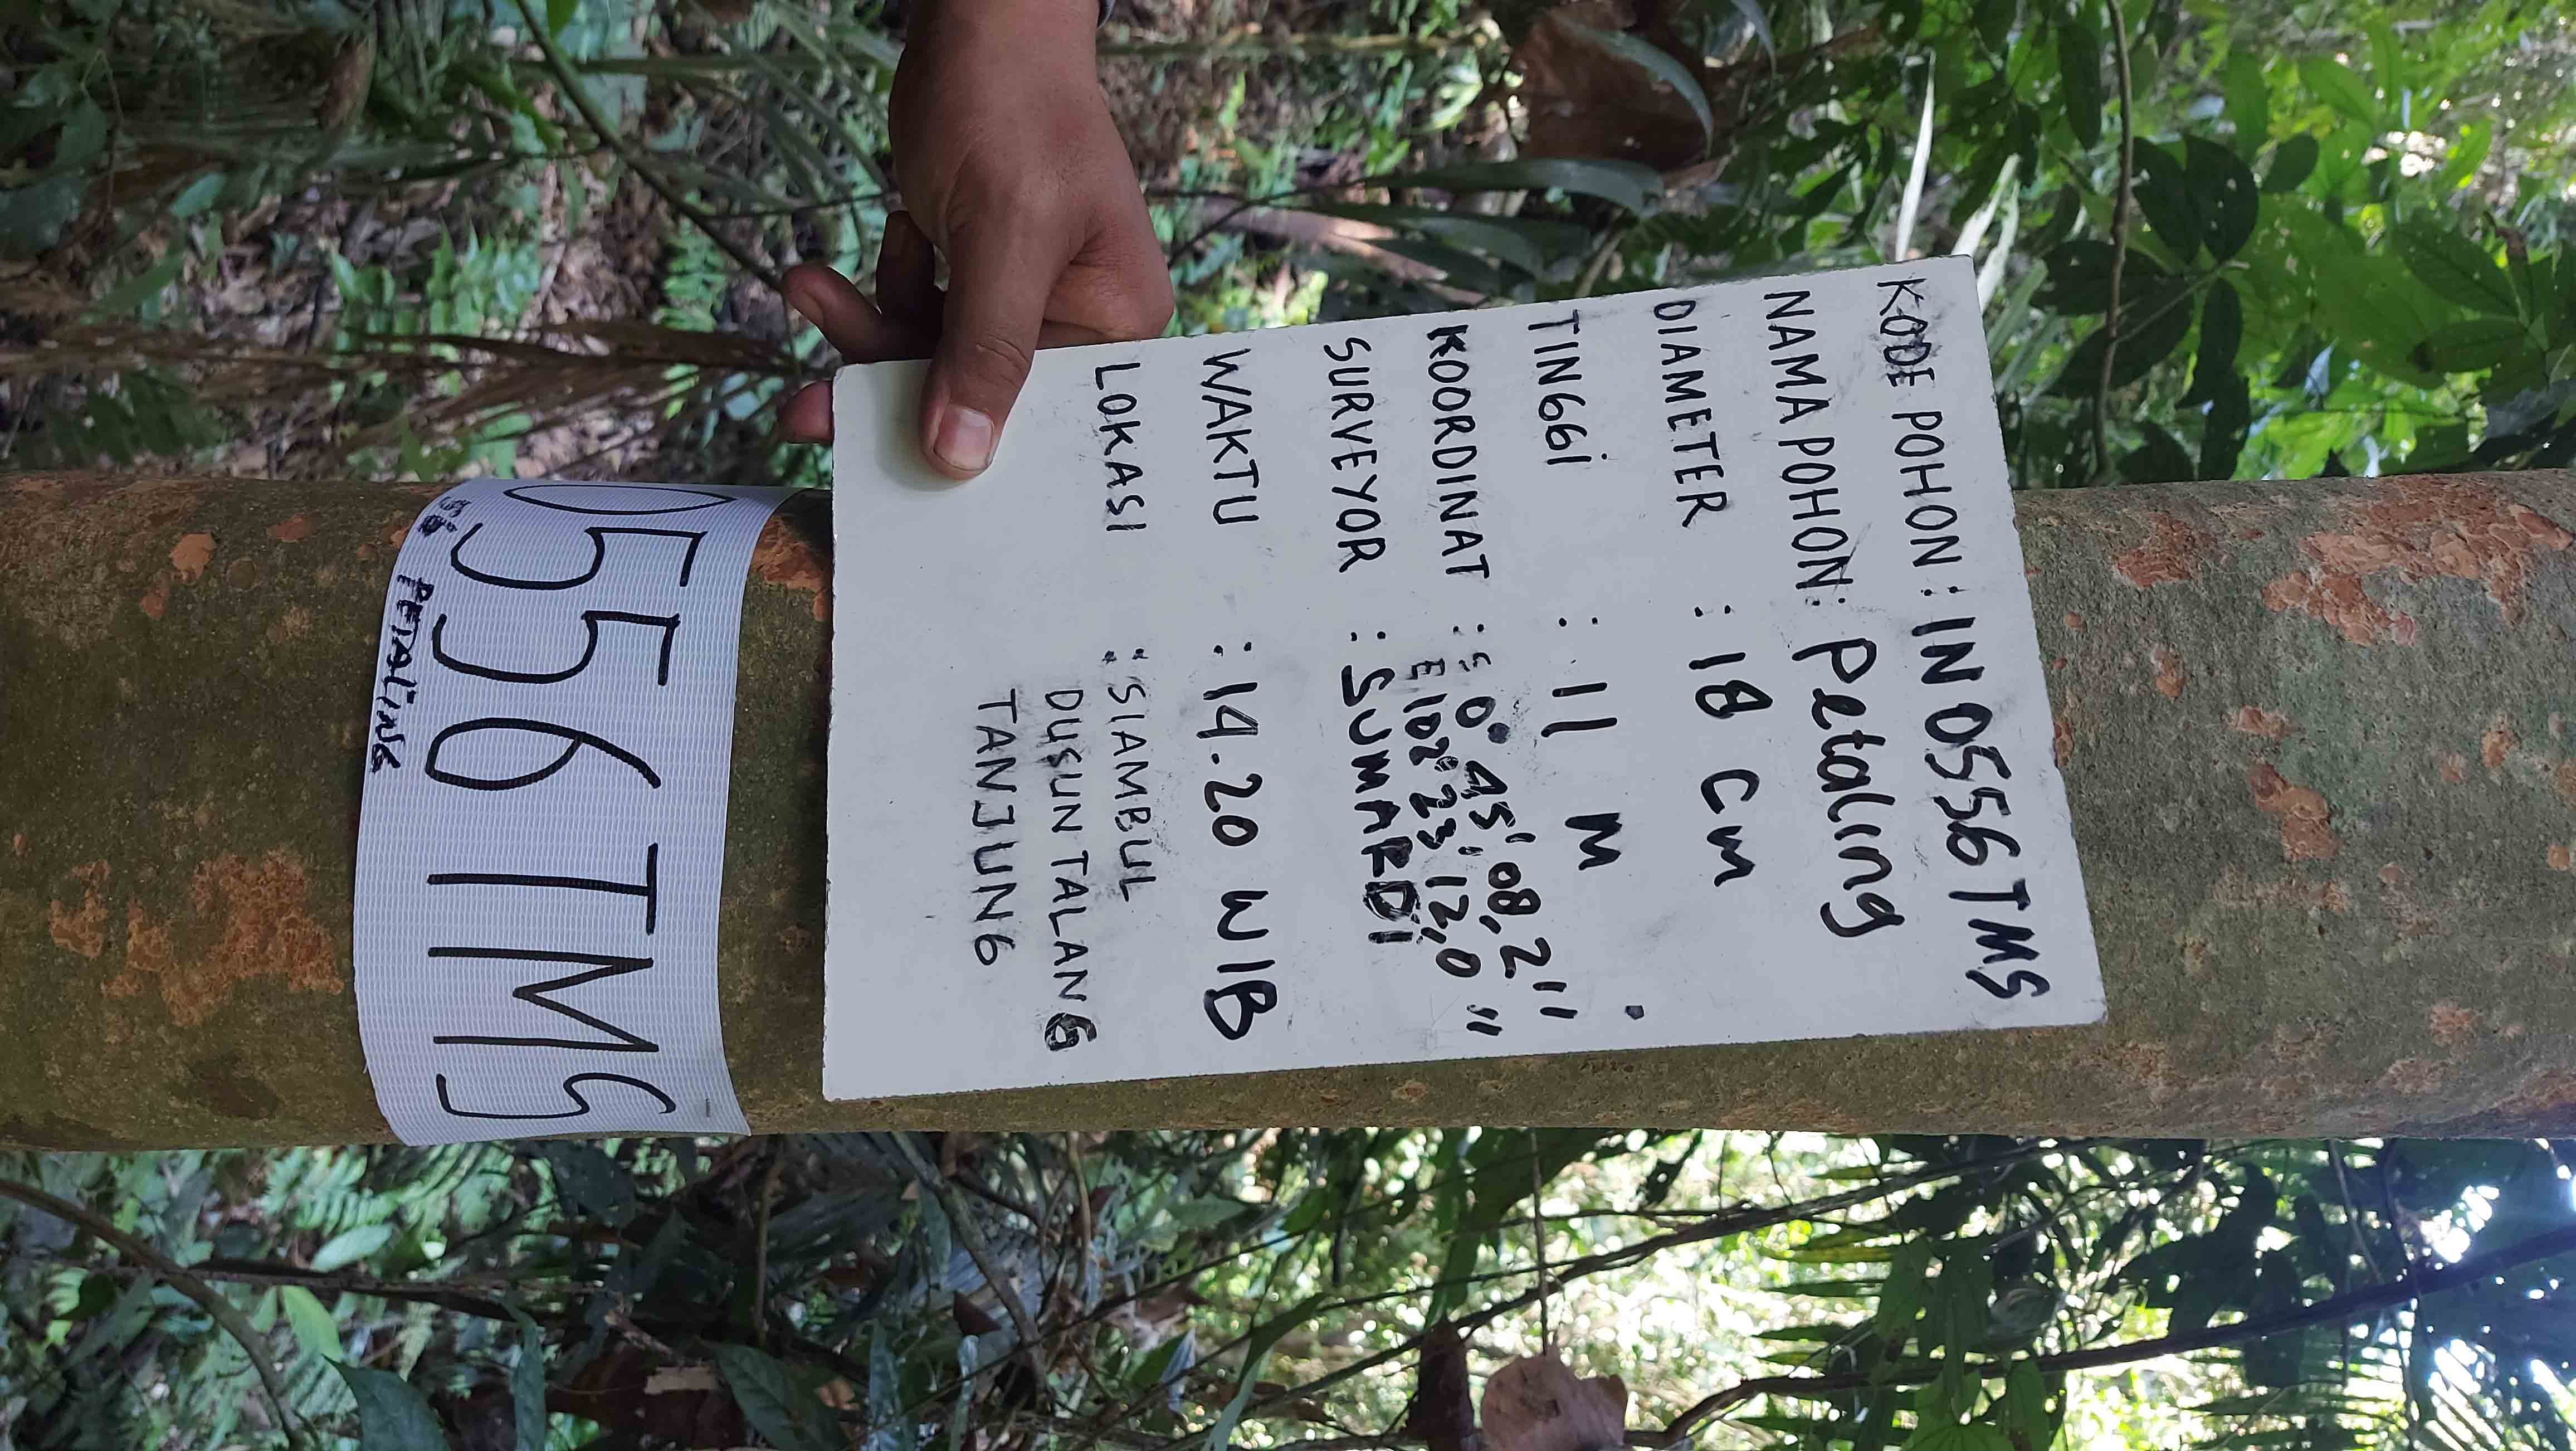 KODE POHON : IN 0556 TMS
NAMA POHON : Petaling
DIAMETER : 18 cm
TINGGi : 11 M
KOORDINAT : S 0° 45' 08,2"
E 102° 23' 12,0"
SURVEYOR : SUMARDI
WAKTU : 14.20 WIB
LOKASI : SIAMBUL
DUSUN TALANG
TANJUNG
0556TMS
PETALiNG